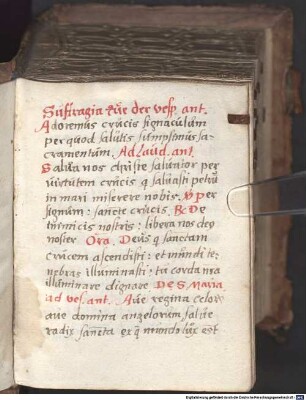 Suffragia Fr̄e der vesp. ant.
Adoremus crucis signaculum
per quod salutis sumpsimus sa-
cramentum. Ad laud. ant.
Salva nos christe salvator per
virtutem crucis q salvasti petrū
in mari miserere nobis. V Per
signum : sancte crucis. R De
inimicis nostris : libera nos deꝯ
noster Ora. Deus q sanctam
crucem ascendisti : et mundi te-
nebras illuminasti : tu corda nr̄a
illuminare dignare De S Maria
ad ves. ant. Ave regina celorū
ave domina angelorum salve
radix sancta ex q̄ mundo lux est